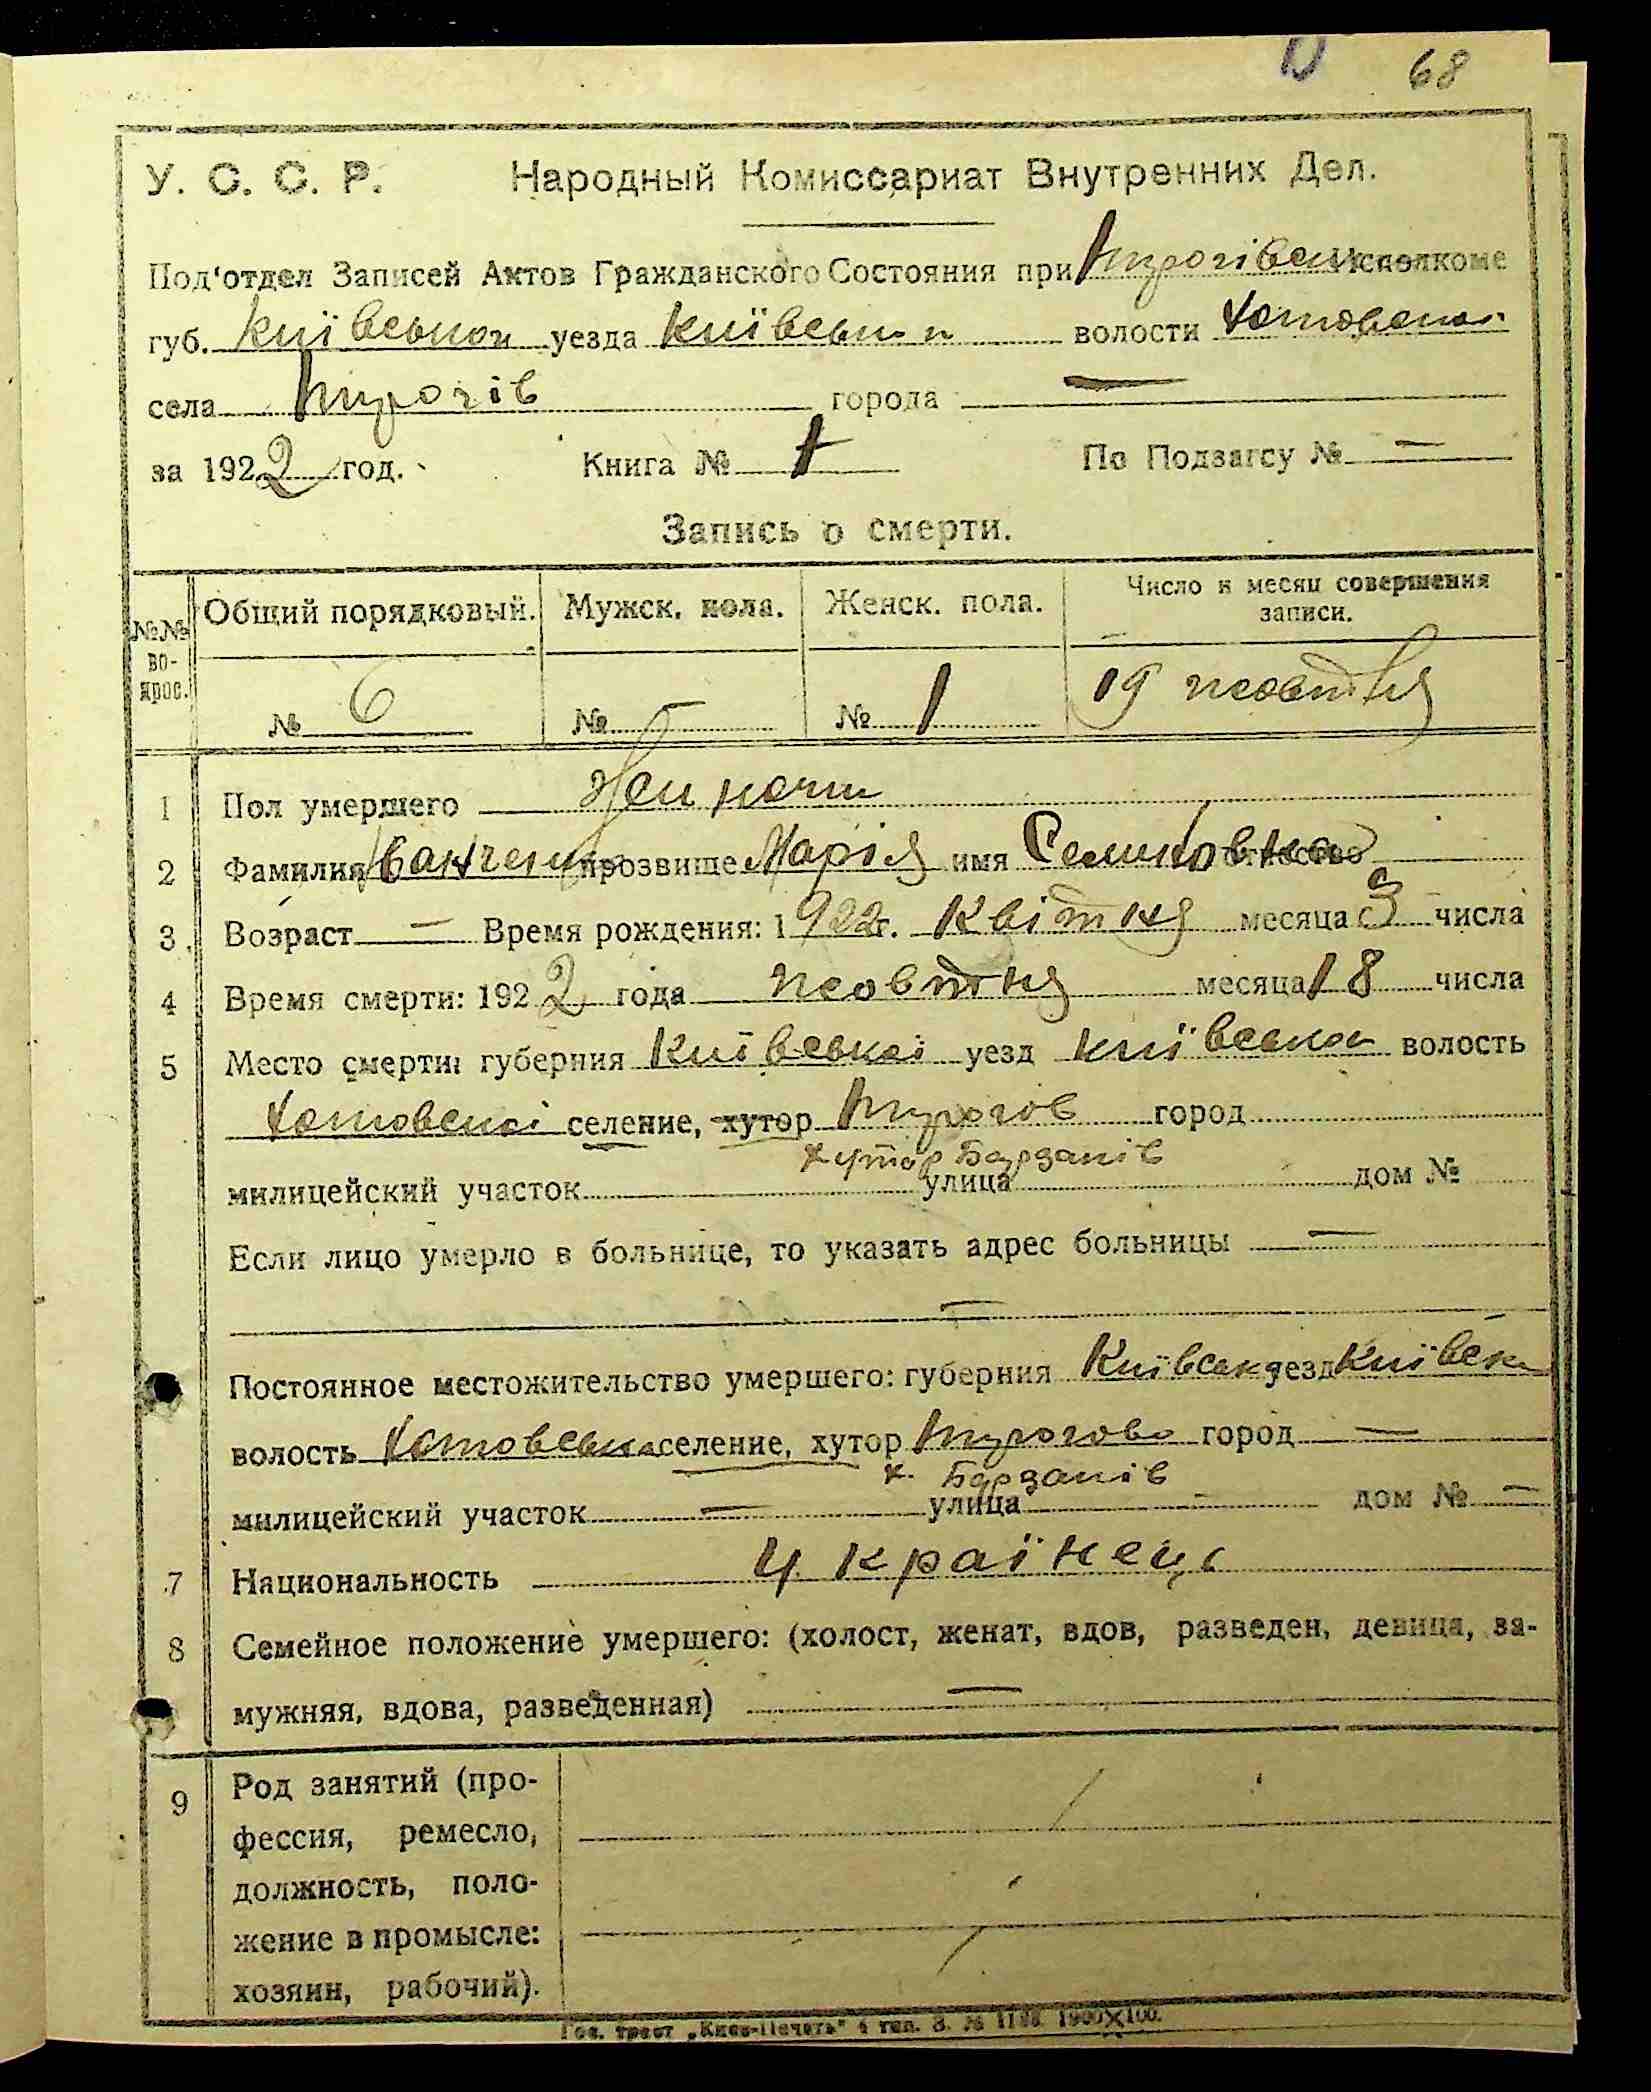 68
У. С. С. Р. Народный Комиссариат Внутренних Дел.
Под'отдел Записей Актов Гражданского Состояния при Пирогівськ исполкоме
губ. Київської уезда Київськ волости Хотовської
села Пирогів города —
за 1922 год. Книга № 1 По Подзагсу № —
Запись о смерти.
№№ во-прос. Общий порядковый. Мужск. пола. Женск. пола. Число и месяц совершения записи.
№ 6 № — № 1 19 жовтня
1 Пол умершего
2 Фамилия прозвище Марія имя отчество
3 Возраст — Время рождения: 1922 г. Квітня месяца 3 числа
4 Время смерти: 1922 года жовтня месяца 18 числа
5 Место смерти: губерния Київської уезд Київської волость
Хотовської селение, хутор Пирогов город
хутор Барзаків
милицейский участок улица дом №
Если лицо умерло в больнице, то указать адрес больницы —
—
Постоянное местожительство умершего: губерния Київськ уезд Київськ
волость Хотовська селение, хутор Пирогово город —
х. Барзаків
милицейский участок — улица — дом № —
7 Национальность Українець
8 Семейное положение умершего: (холост, женат, вдов, разведен, девица, за-
мужняя, вдова, разведенная) —
9 Род занятий (про-
фессия, ремесло,
должность, поло-
жение в промысле:
хозяин, рабочий).
Гос. трест „Киев-Печать" 4 тип. З. № 1198 1900×100.